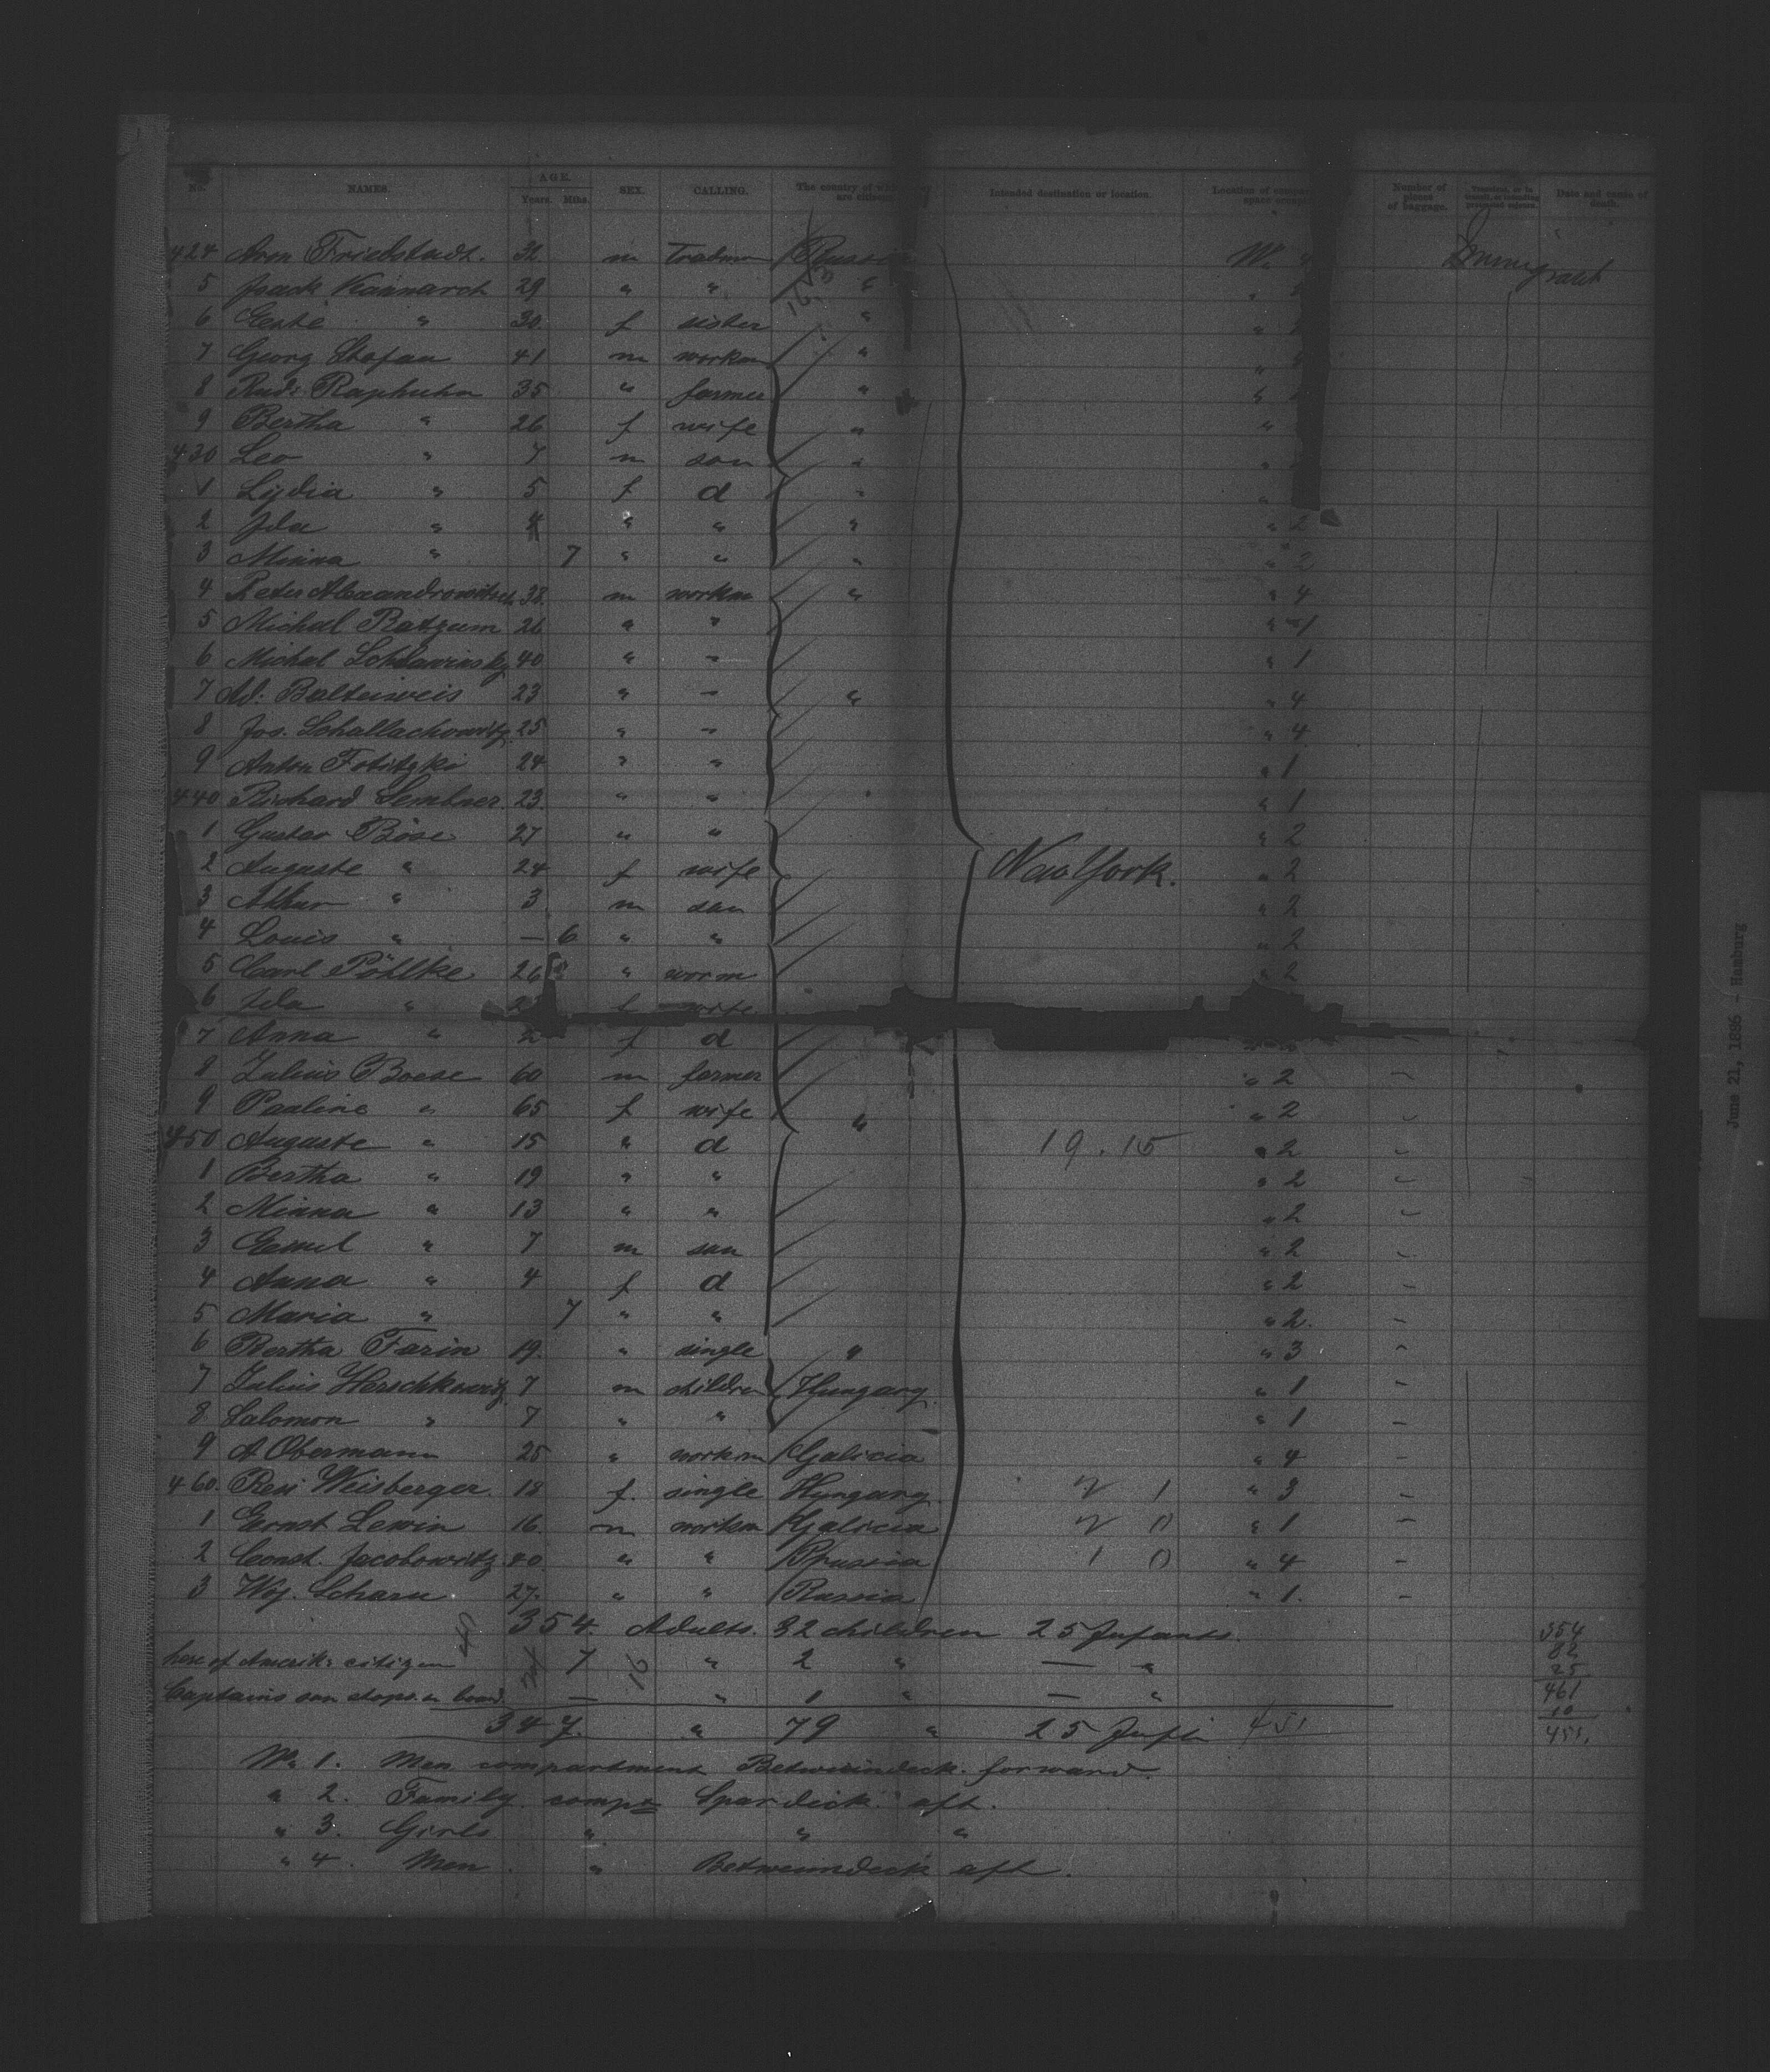 No. NAMES. AGE. Years. Mths. SEX. CALLING. The country of which are citizens. Intended destination or location Location of compartment space occupied Number of pieces of baggage. Date and cause of death.
424 Aron Friedstadt. 32 m Tradm Russia No Immigrant
5 Isack Kannarch 29 " " "
6 Geste " 30 f sister "
7 Georg Stefan 41 m workm "
8 Rud: Raphuhn 35 " farmer "
9 Bertha " 26 f wife " "
430 Leo " 7 m son " "
1 Lydia " 5 f d " "
2 Ida " 4 " " " " 2
3 Minna " 7 " " " " 2
4 Peter Alexandrowitsch 38 m workm " " 4
5 Michal Ratzum 26 " " " 1
6 Michal Schlawinsky 40 " " " 1
7 Ad: Balteiweis 23 " " " " 4
8 Jos. Schallachowitz 25 " " " 4
9 Anton Fotitzki 24 " " " 1
440 Richard Lembner 23 " " " 1
1 Gustav Böse 27 " " " 2
2 Auguste " 24 f wife New York. " 2
3 Athur " 3 m son " 2
4 Louis " — 6 " " " 2
5 Carl Pöhlke 26 " worm " 2
6 Ida " f wife
7 Anna " 2 f d
8 Julius Boese 60 m farmer " 2
9 Pauline " 65 f wife " " 2
450 Auguste " 15 " d 19.15 " 2
1 Bertha " 19 " " " 2
2 Minna " 13 " " " 2
3 Emil " 7 m son " 2
4 Anna " 4 f d " 2
5 Maria " 7 " " " 2.
6 Bertha Farin 19. " single " " 3
7 Julius Herschkowitz 7 m children Hungary " 1
8 Salomon " 7 " " " 1
9 A Obermann 25 " workm Galicia " 4
460. Resi Weisberger. 18 f. single Hungary " 3
1 Ernst Lewin 16 m workm Galicia " 1
2 Const. Jacobowitz 40 " " Prussia 1 0 " 4
3 Woj. Scharu 27. " " Russia " 1.
354. Adults. 82 children 25 Infants. 354
82
here of Amerik: citizen 7 " 2 " — " 25
Captains son stops on board. — " 1 " — " 461
10
347. " 79 " 25 Inft 451 451.
No 1. Men compartment Betweendeck. forward.
" 2. Family comp. Spardeck aft.
" 3. Girls " " "
" 4. Men " Betweendeck aft.
June 21, 1886 - Hamburg